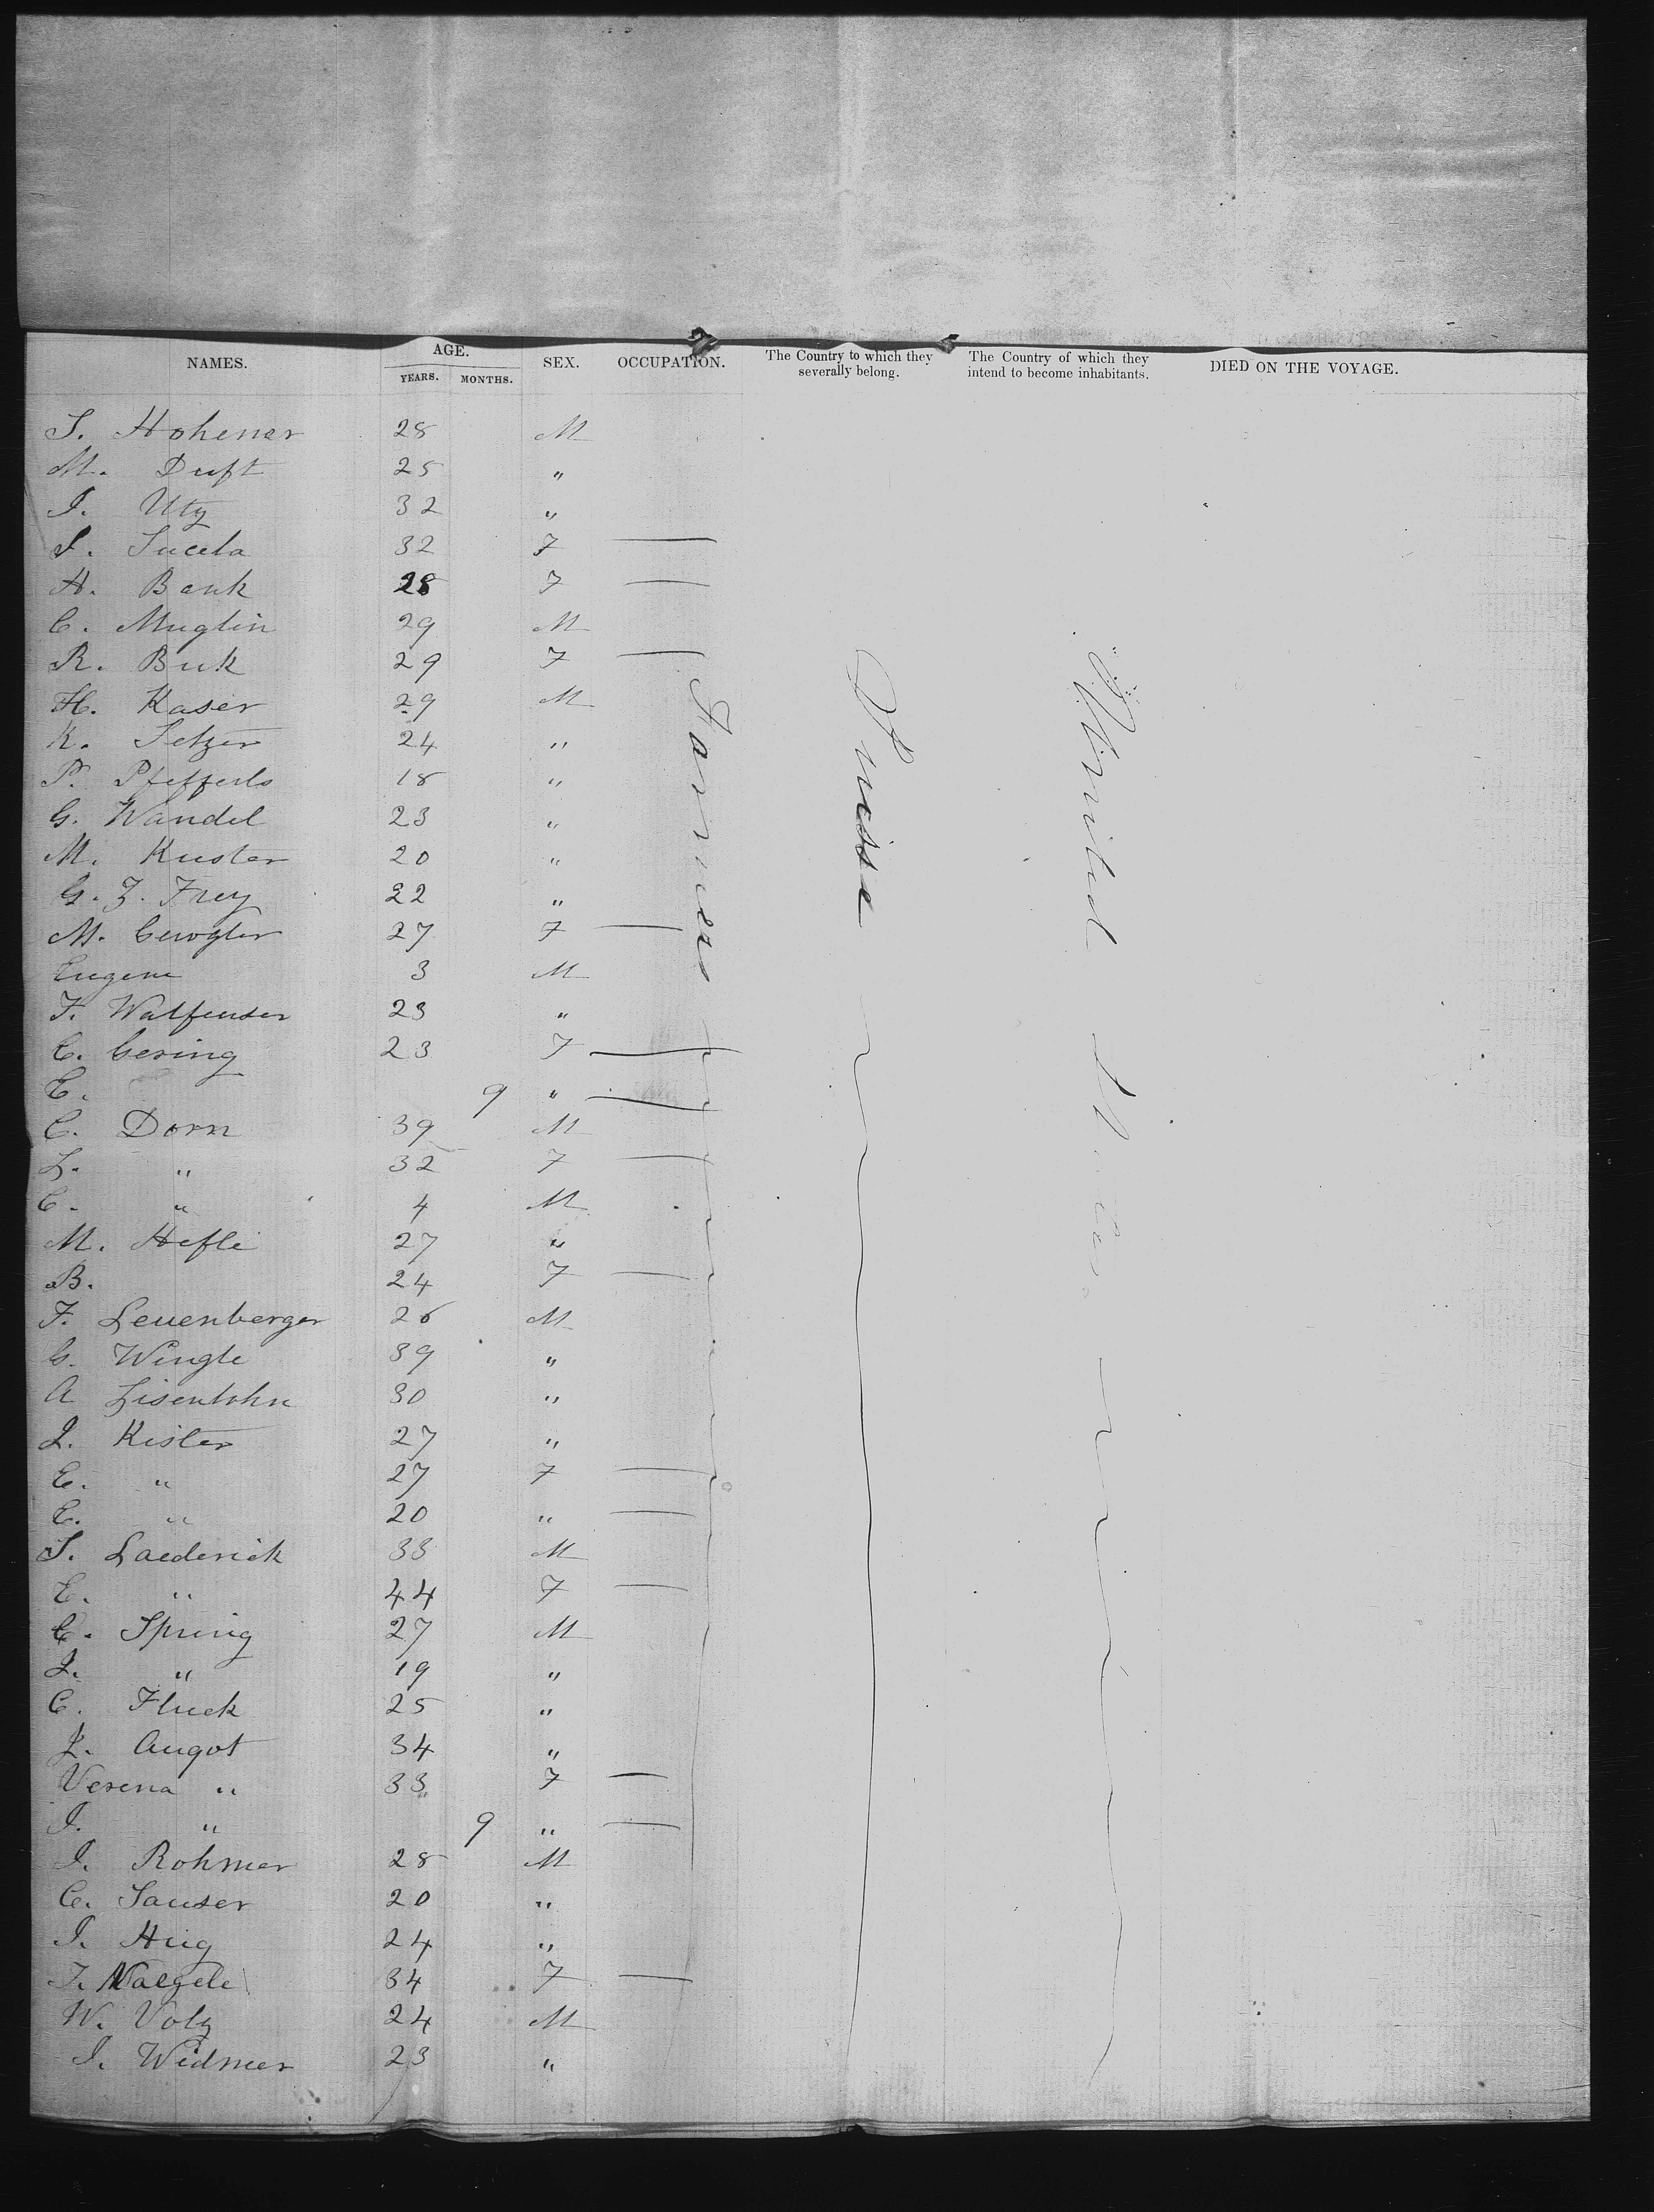 NAMES. AGE. YEARS. MONTHS. SEX. OCCUPATION. The Country to which they severally belong. The Country of which they intend to become inhabitants. DIED ON THE VOYAGE.
S. Hohener 28 M
M. Duft 25 "
I. Utz 32 "
S. Suceta 32 F —
H. Bank 28 F —
C. Muglin 29 M
R. Buk 29 F —
H. Kaser 29 M
K. Setzer 24 "
P. Pfefferls 18 "
G. Wandel 23 "
M. Kuster 20 "
G. Z. Frey 22 "
M. 27 F —
Eugene 3 M
F. Walfenser 23 "
C. Gering 23 F —
E. 9 " —
C. Dorn 39 M
L. " 32 F —
C. " 4 M
M. Hefle 27 "
B. 24 F —
F. Leuenberger 26 M
G. Wingle 39 "
A Lisentohn 30 "
J. Kister 27 "
E. " 27 F —
E. " 20 " —
S. Laederick 33 M
E. " 44 F —
C. Spring 27 M
J. " 19 "
C. Fluck 25 "
J. Augot 34 "
Verena " 33 F —
I. " 9 " —
I. Rohmer 28 M
C. Sauser 20 "
I. Hug 24 "
F. Naegele 34 F —
W. Volz 24 M
I. Widmer 23 "
Farmer
Swisse
United States